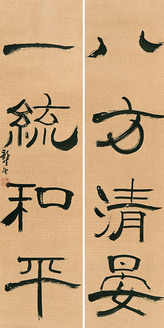 八方清晏
一統和平